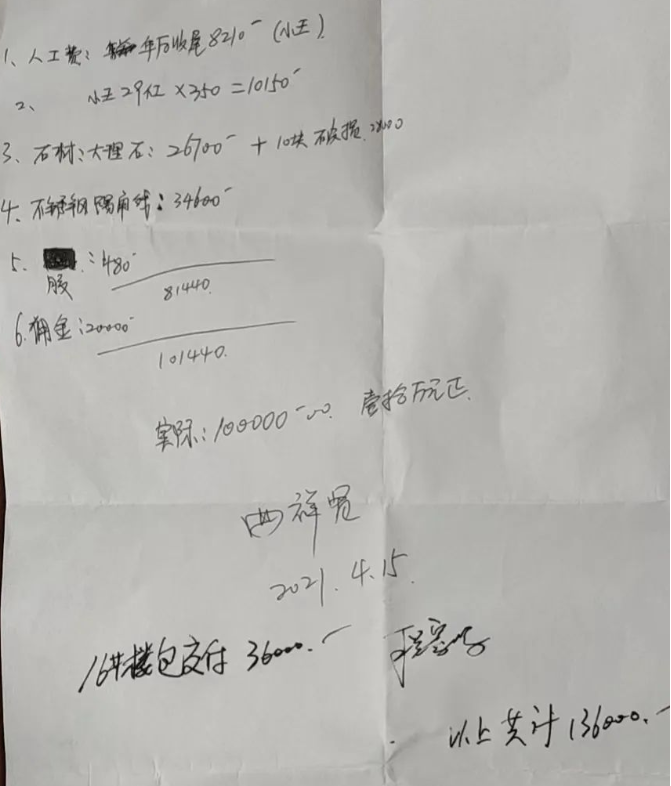 1、人工费：年后收尾8210- (小王)
2、 小王29工×350=10150-
3、石材：大理石：26700- + 10块破损
4、不锈钢阳角线：34600-
5. ：480-
胶
81440.
6.佣金：20000-
101440.
实际：100000-00. 壹拾万元正.
祥贤
2021.4.15.
16#楼包交付 36000.-
以上共计136000.-